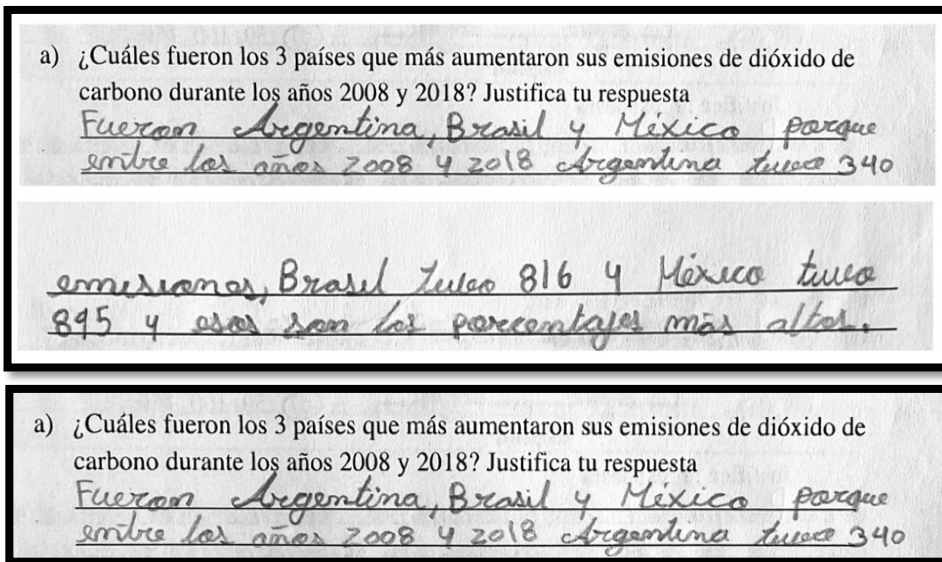 a) ¿Cuáles fueron los 3 países que más aumentaron sus emisiones de dióxido de
carbono durante los años 2008 y 2018? Justifica tu respuesta
Fueron Argentina, Brasil y México porque
entre los años 2008 y 2018 Argentina tuvo 340
emisiones, Brasil tuvo 816 y México tuvo
895 y esos son los porcentajes más altos.
a) ¿Cuáles fueron los 3 países que más aumentaron sus emisiones de dióxido de
carbono durante los años 2008 y 2018? Justifica tu respuesta
Fueron Argentina, Brasil y México porque
entre los años 2008 y 2018 Argentina tuvo 340